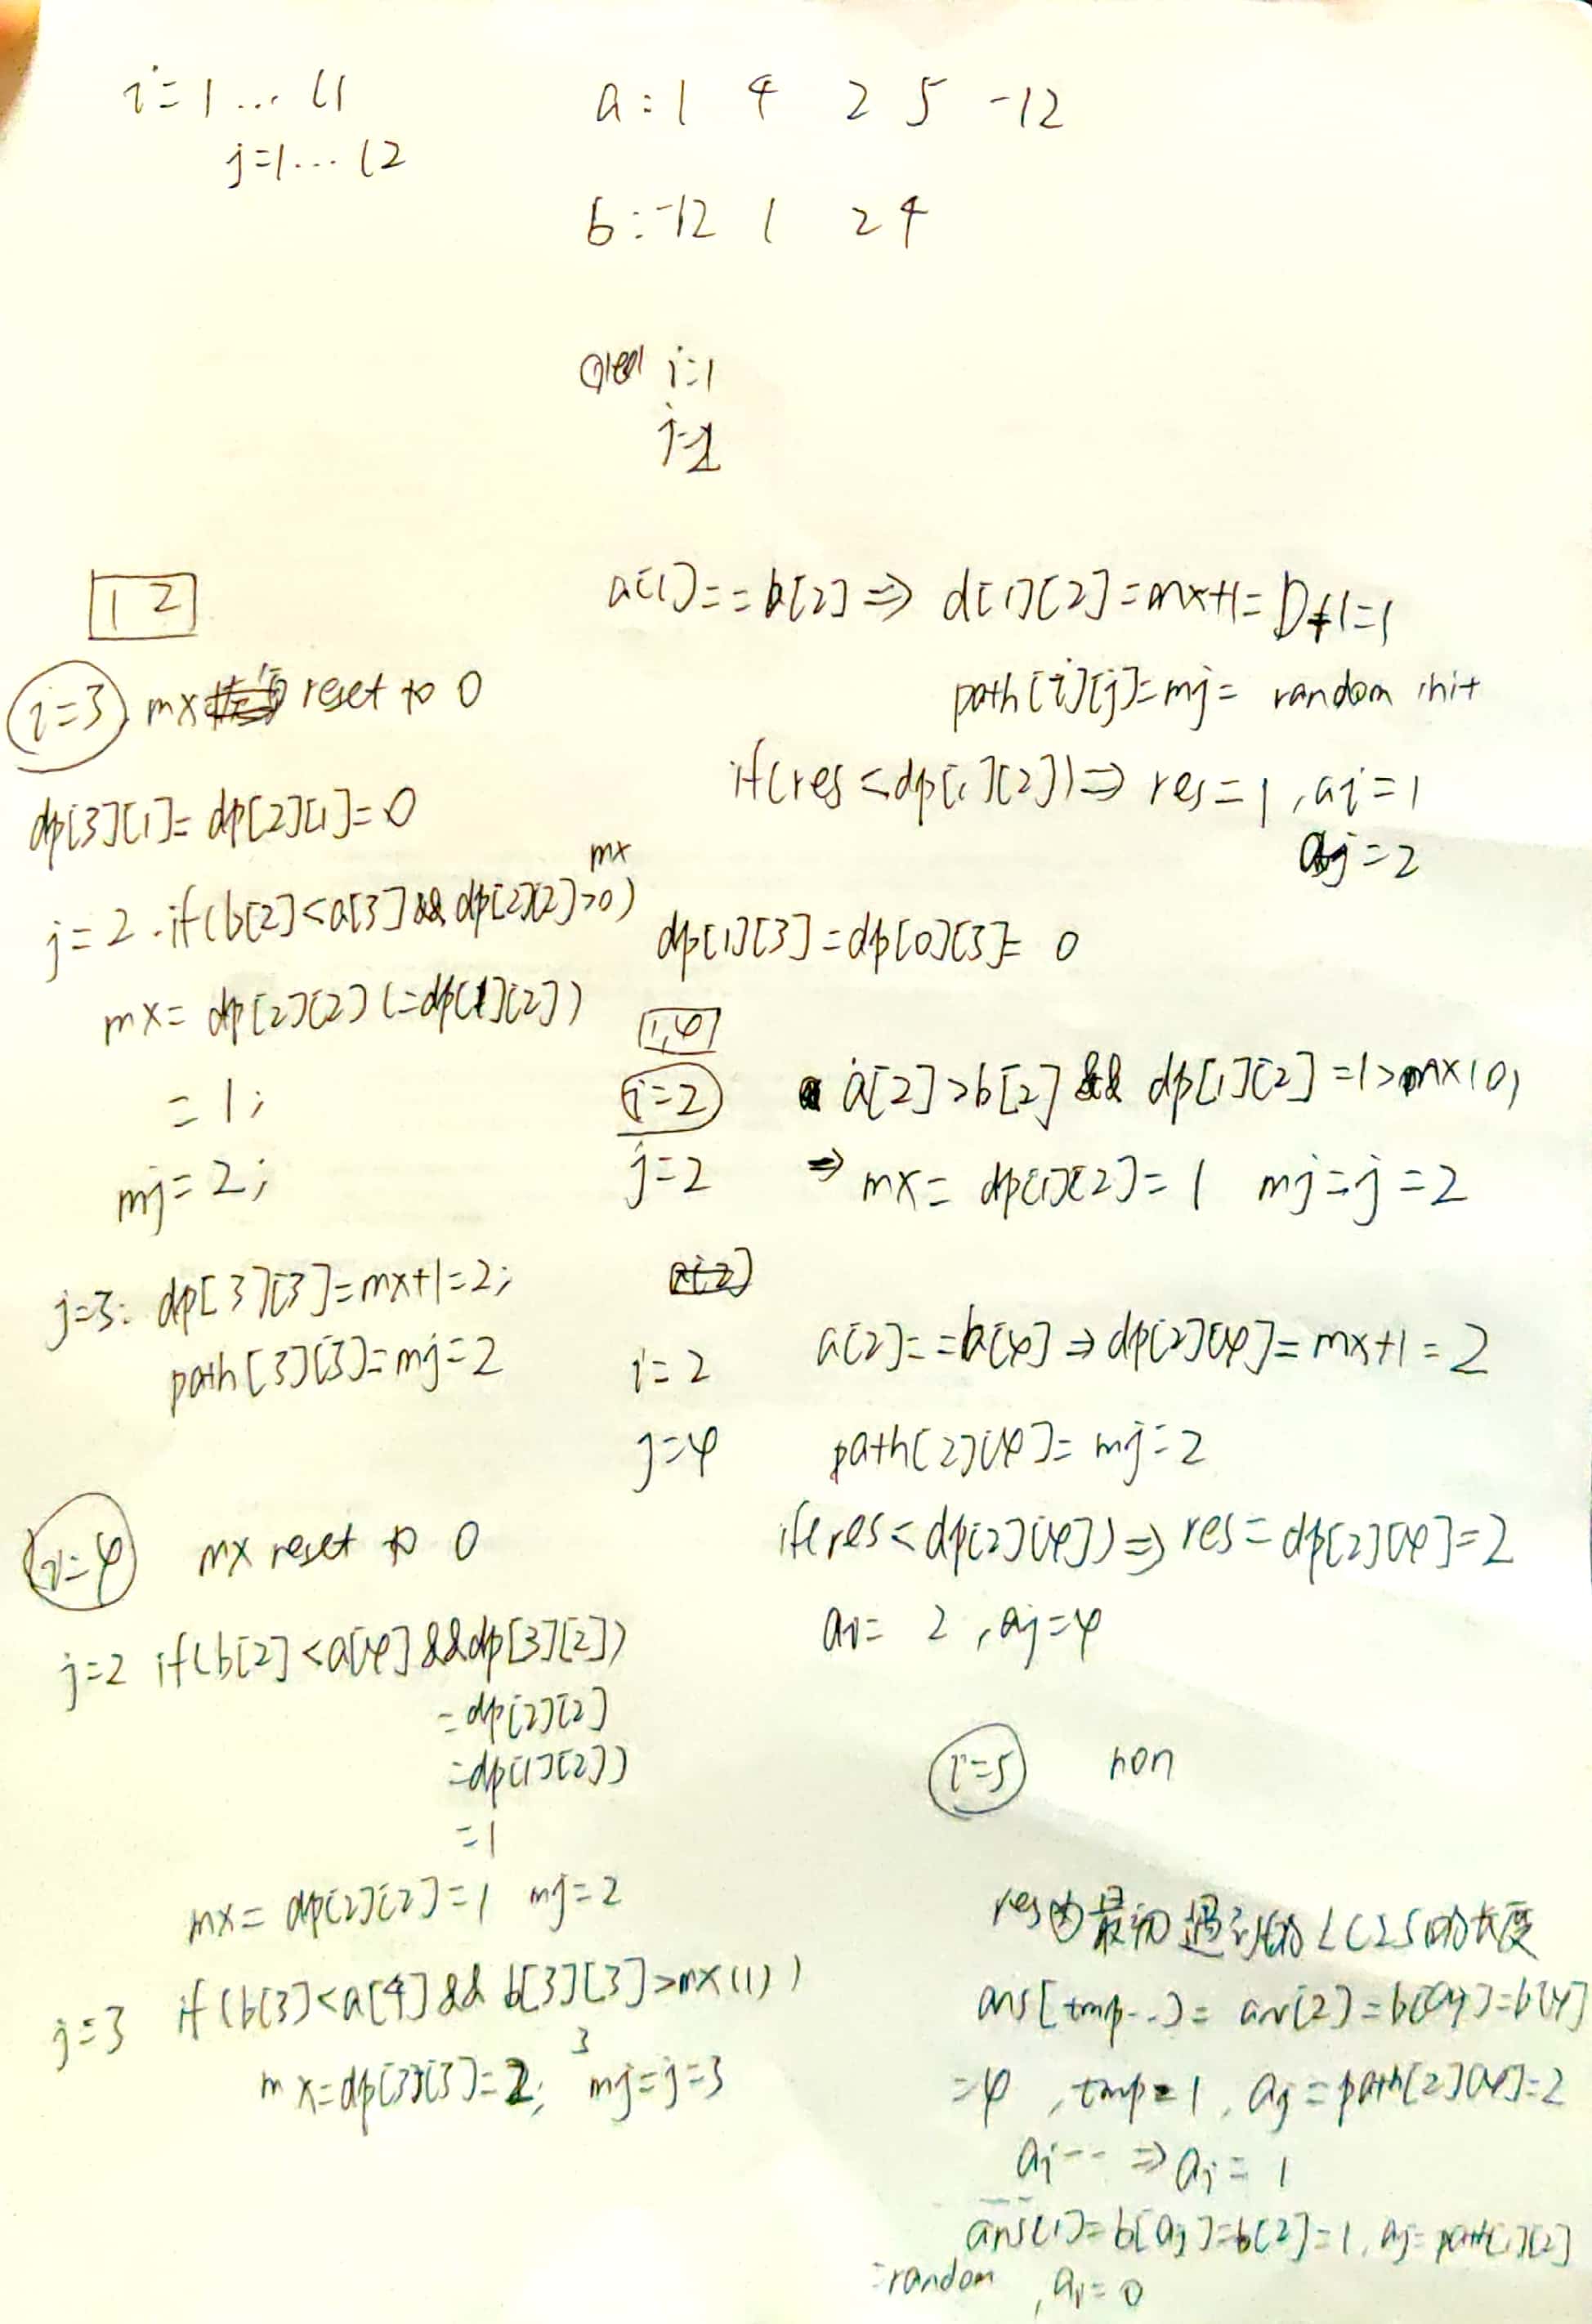 i=1 ... l1
j=1... l2
a:1 4 2 5 -12
b:-12 1 2 4
i=1
j=2
a[1]==b[2] => d[1][2]=mx+1=0+1=1
path[i][j]=mj= random init
if(res<dp[1][2]) => res=1, ai=1
aj=2
dp[1][3]=dp[0][3]=0
1,4
i=2
a[2]>b[2] && dp[1][2]=1>mx(0)
j=2
=> mx=dp[1][2]=1 mj=j=2
i=2
a[2]==b[4] => dp[2][4]=mx+1=2
j=4
path[2][4]=mj=2
if(res<dp[2][4]) => res=dp[2][4]=2
ai=2, aj=4
1 2
i=3, mx reset to 0
dp[3][1]=dp[2][1]=0
mx
j=2. if(b[2]<a[3]&&dp[2][2]>0)
mx=dp[2][2](=dp[1][2])
=1;
mj=2;
j=3: dp[3][3]=mx+1=2;
path[3][3]=mj=2
i=4 mx reset to 0
j=2 if(b[2]<a[4]&&dp[3][2])
=dp[2][2]
=dp[1][2])
=1
mx=dp[2][2]=1 mj=2
j=3 if(b[3]<a[4]&&b[3][3]>mx(1))
mx=dp[3][3]=2; 3 mj=j=3
i=5 non
res为最初遇到的LCIS的长度
ans[tmp--]=ans[2]=b[aj]=b[4]
=4, tmp=1, aj=path[2][4]=2
ai-- => ai=1
ans[1]=b[aj]=b[2]=1, aj=path[1][2]
=random, ai=0